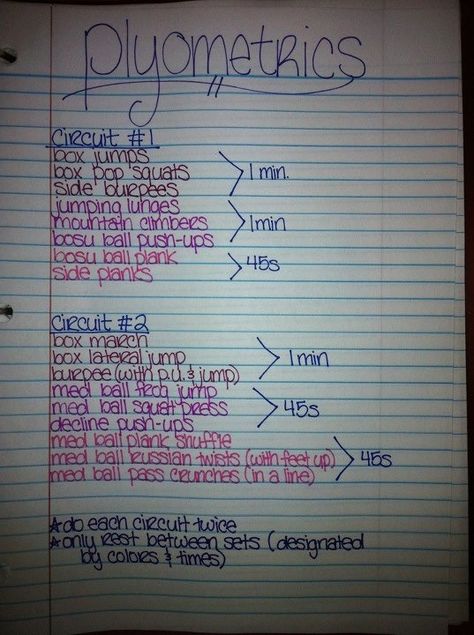 plyometrics
circuit #1
box jumps
box pop squats > 1 min.
side burpees
jumping lunges
mountain climbers > 1 min
bosu ball push-ups
bosu ball plank > 45s
side planks
circuit #2
box march
box lateral jump > 1 min
burpee (with p.u. & jump)
med ball frog jump
med ball squat press > 45s
decline push-ups
med ball plank shuffle
med ball russian twists (with feet up) > 45s
med ball pass crunches (in a line)
★do each circuit twice
★only rest between sets (designated
by colors & times)